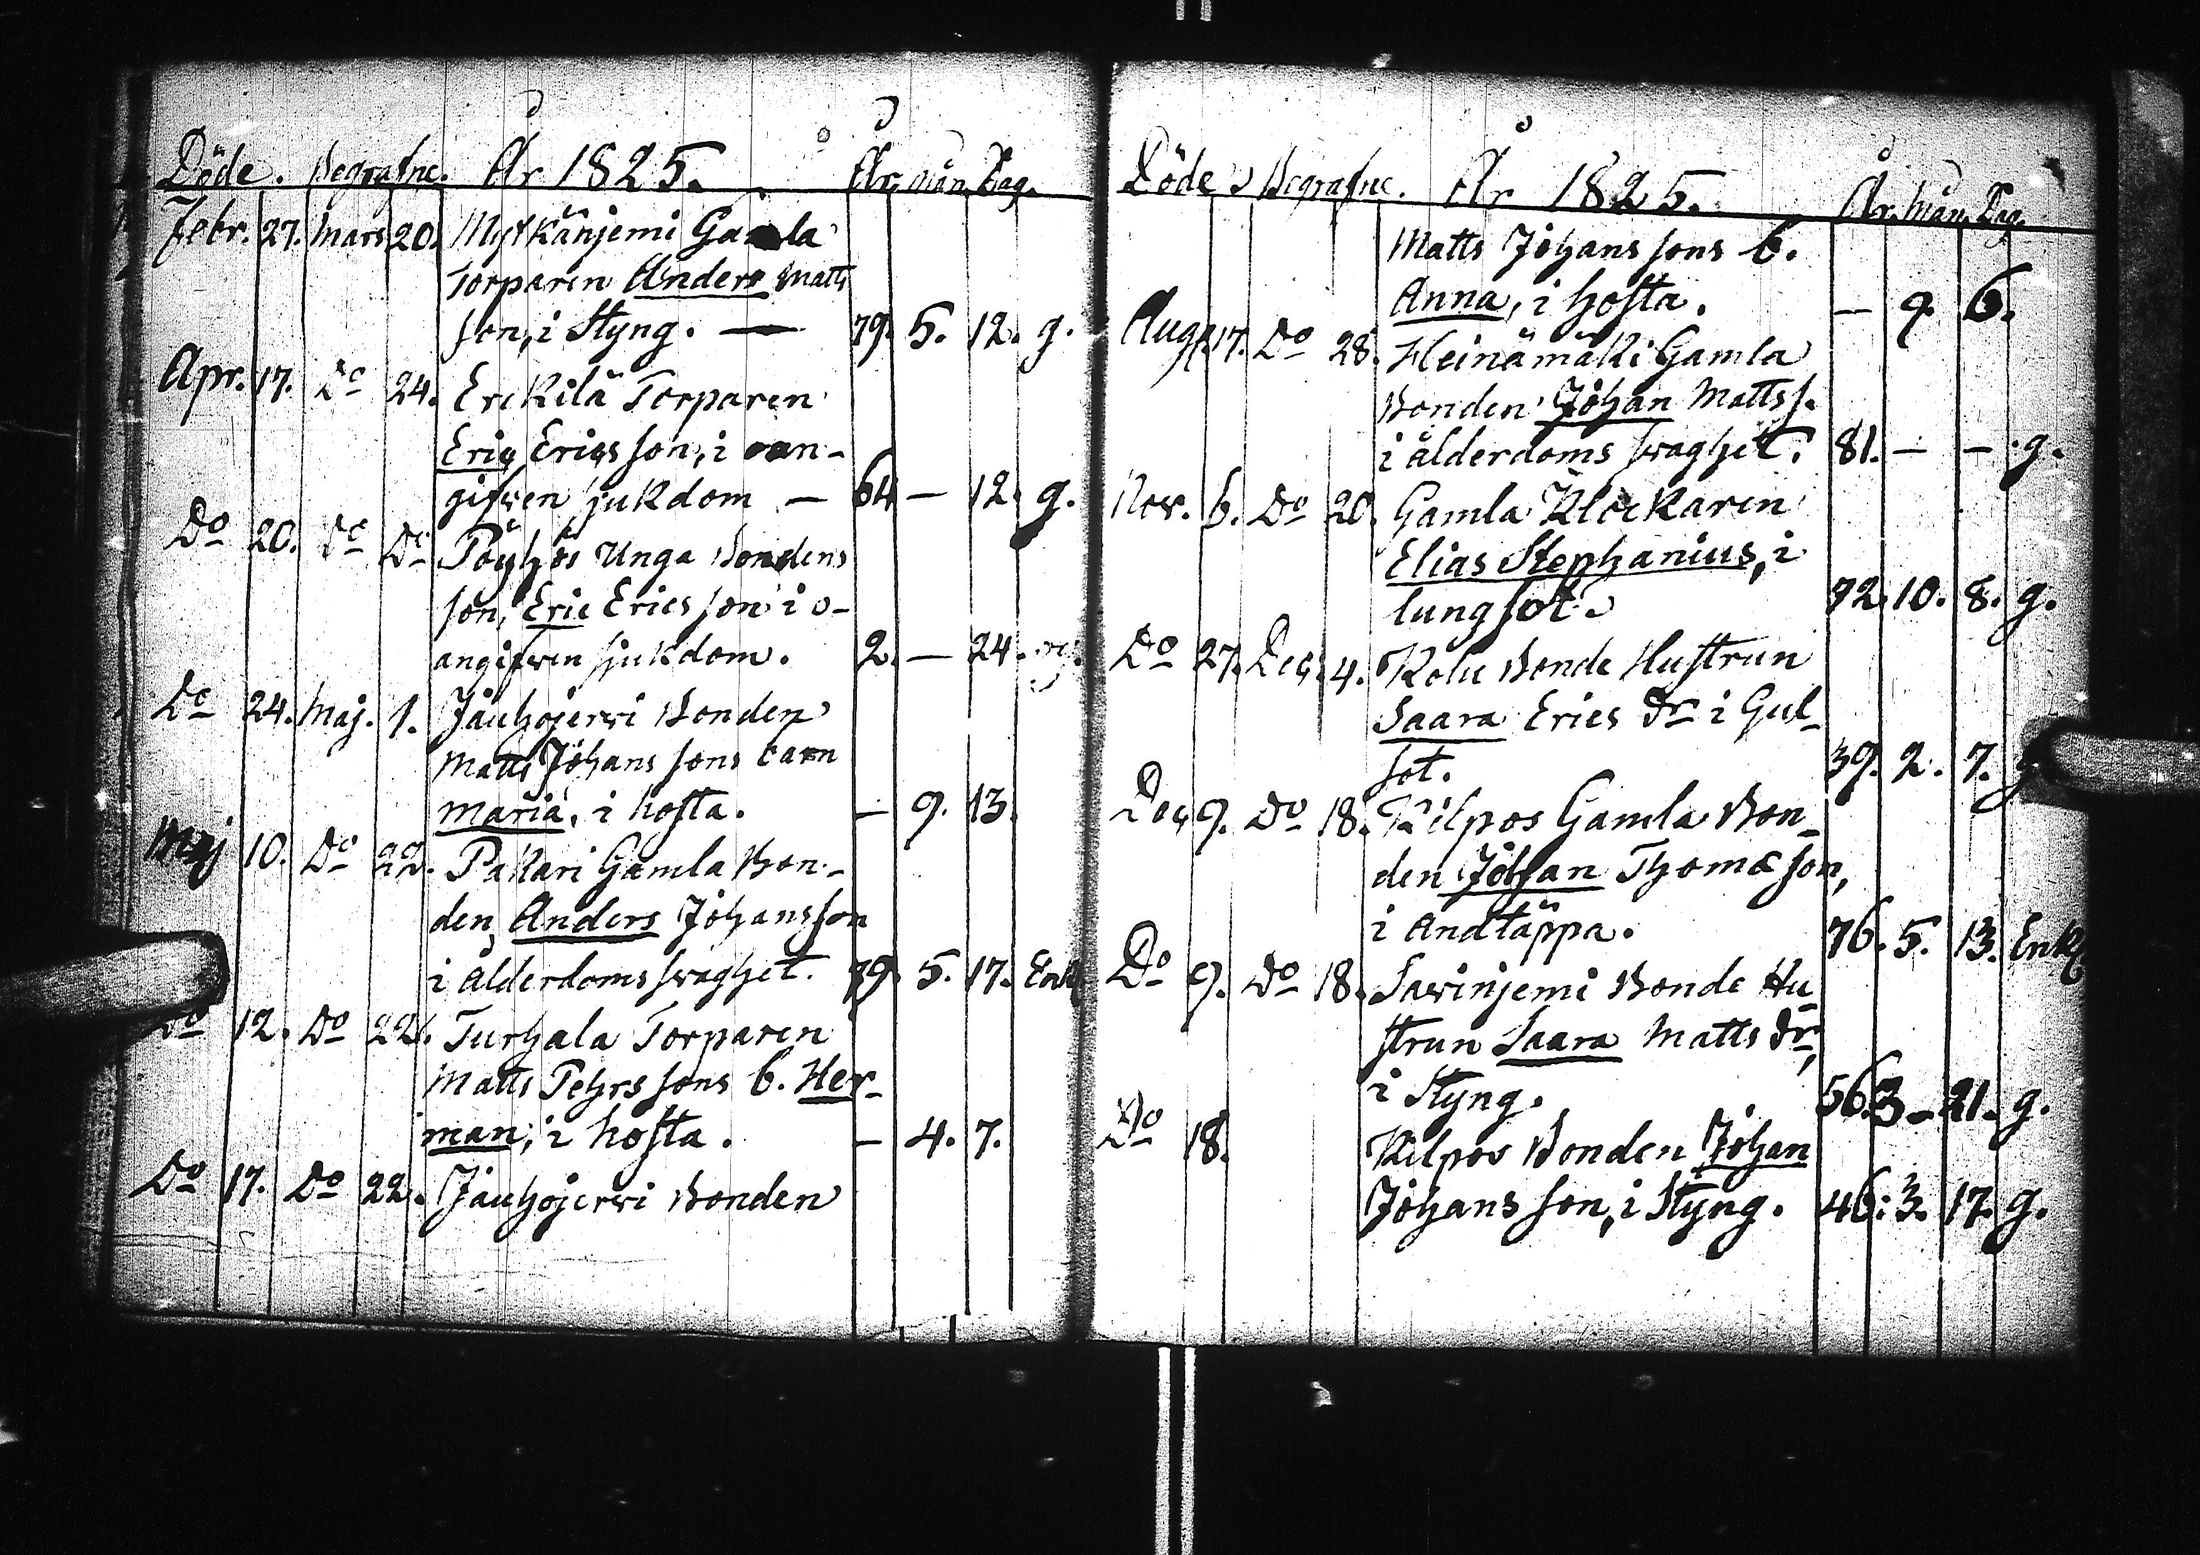 Döde. Begrafne. År 1825. År. Mån. Dag.
Febr. 27. Mars 20. Mytkänjemi Gamla
Torparen Anders Matts
son, i Styng. — 79. 5. 12. g.
Apr. 17. Do 24. Erckilä Torparen
Eric Ericsson, i oan-
gifwen sjukdom — 64 — 12. g.
Do 20. Do Do Pöyhös Unga Bondens
son, Eric Ericsson i o-
angifwen sjukdom. 2. — 24.
Do 24. Maj. 1. Jauhojerwi Bonden
Matts Johanssons barn
Maria, i hosta. — 9. 13.
Maj 10. Do 22. Pakari Gamla Bon-
den, Anders Johansson
i ålderdomsswaghet. 79. 5. 17. Enkl
Do 12. Do 22. Turhala Torparen
Matts Pehrssons b. Her-
man, i hosta. — 4. 7.
Do 17. Do 22. Jauhojerwi Bonden
Döde Begrafne. År 1825. År. Mån. Dag.
Matts Johanssons b.
Anna, i hosta. — 9 6.
Aug. 17. Do 28. Heinämäki Gamla
Bonden Johan Mattss.
i ålderdoms swaghet. 81. — — g.
Nov. 6. Do 20. Gamla Klockaren
Elias Stephanius, i
lungsot. 72. 10. 8. g.
Do 27. Dec. 4. Kolu Bonde Hustrun
Saara Erics dr i Gul-
sot. 39. 2. 7. g
Dec 9. Do 18. Kilpos Gamla Bon-
den Johan Thomæson,
i Andtäppa. 76. 5. 13. Enkl
Do 9. Do 18. Sawinjemi Bonde Hu-
strun Saara Matts dr,
i Styng. 56. 3 — 21. g.
Do 18. Kilpos Bonden Johan
Johansson, i Styng. 46. 3. 17. g.